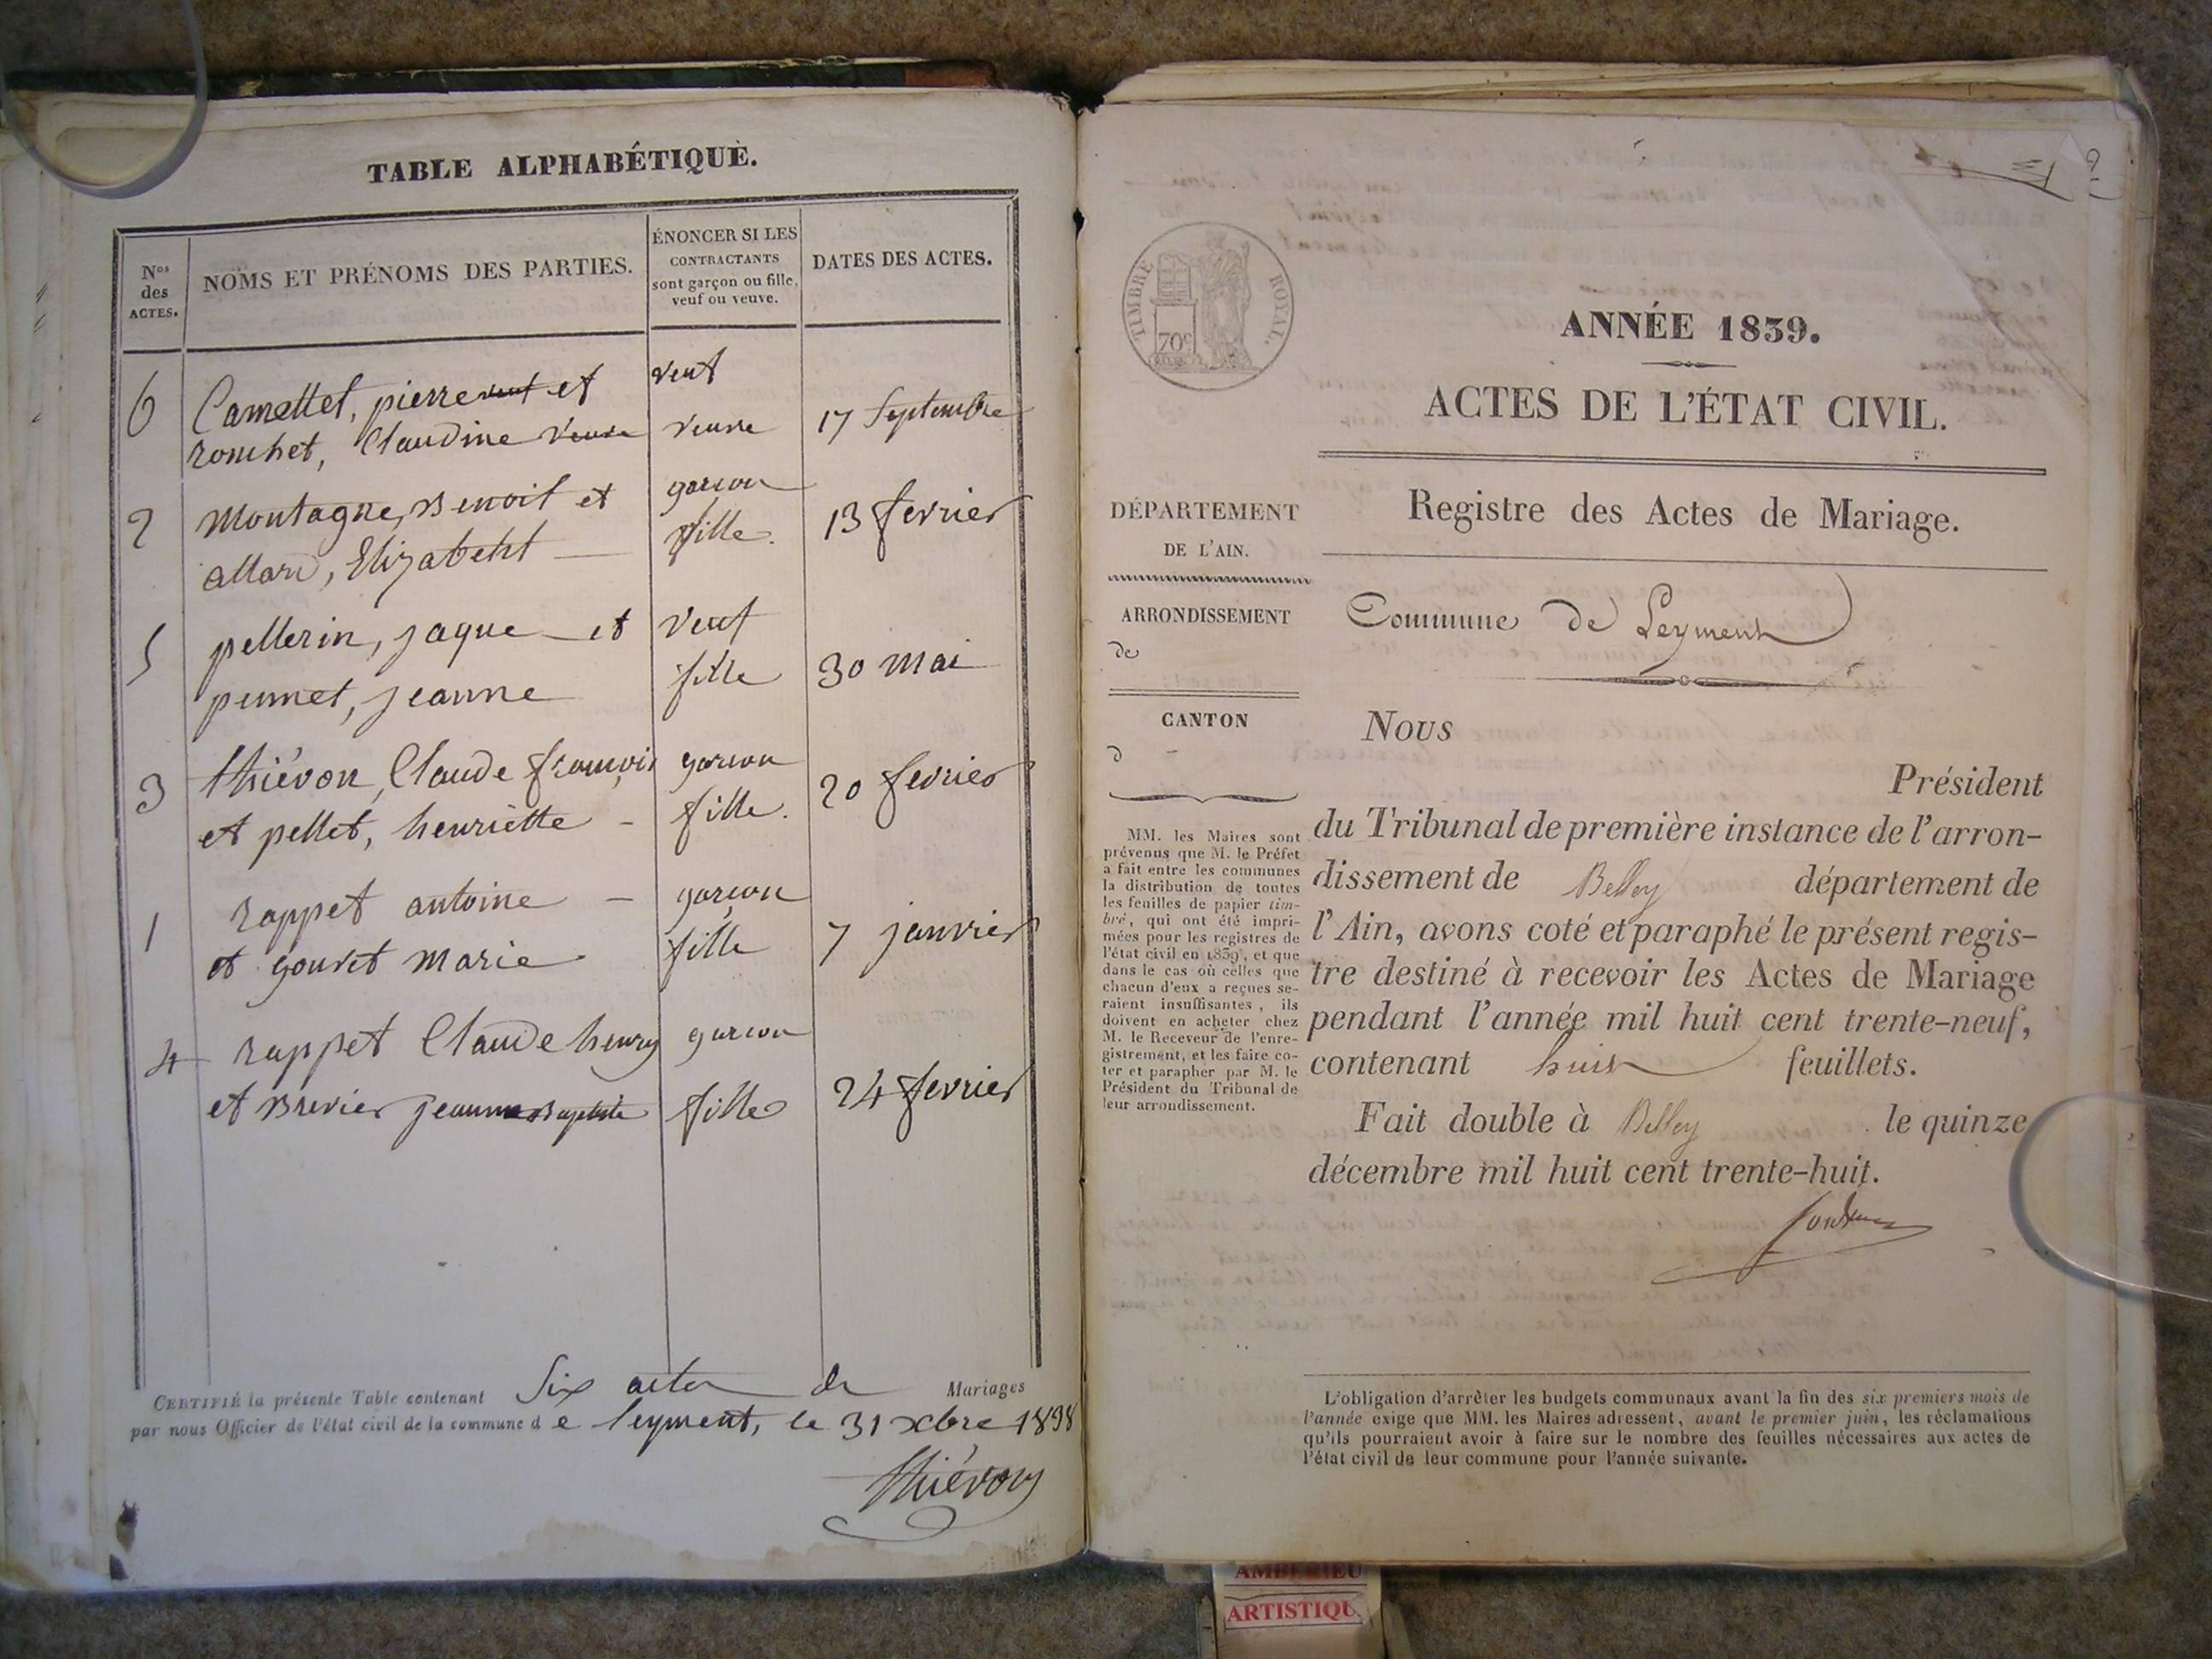 TABLE ALPHABÉTIQUE.
Nos
des
ACTES.
NOMS ET PRÉNOMS DES PARTIES.
ÉNONCER SI LES
CONTRACTANTS
sont garçon ou fille,
veuf ou veuve.
DATES DES ACTES.
6 Camettet, pierre et veuf
Claudine veuve veuve 17 Septembre
2 Montagne, Benoit et garcon
allard, Elizabeht fille. 13 fevrier
5 pellerin, jaque et veuf
jeanne fille 30 mai
3 thiévon, Claude françois garcon
et pellet, henriette fille. 20 fevrier
1 rappet antoine garçon
et gouvet marie fille 7 janvier
4 rappet Claude henry garcon
et Brevier jeanne Baptiste fille 24 fevrier
CERTIFIÉ la présente Table contenant Six actes de Mariages
par nous Officier de l'état civil de la commune de leyment, le 31 xbre 1838
thiévon
TIMBRE ROYAL.
70c
ANNÉE 1839.
ACTES DE L'ÉTAT CIVIL.
DÉPARTEMENT
DE L'AIN.
ARRONDISSEMENT
de
CANTON
d
MM. les Maires sont
prévenus que M. le Préfet
a fait entre les communes
la distribution de toutes
les feuilles de papier tim-
bré, qui ont été impri-
mées pour les registres de
l'état civil en 1839, et que
dans le cas où celles que
chacun d'eux a reçues se-
raient insuffisantes, ils
doivent en acheter chez
M. le Receveur de l'enre-
gistrement, et les faire co-
ter et parapher par M. le
Président du Tribunal de
leur arrondissement.
Registre des Actes de Mariage.
Commune de Leyment
Nous
Président
du Tribunal de première instance de l'arron-
dissement de Belley département de
l'Ain, avons coté et paraphé le présent regis-
tre destiné à recevoir les Actes de Mariage
pendant l'année mil huit cent trente-neuf,
contenant huit feuillets.
Fait double à Belley le quinze
décembre mil huit cent trente-huit.
L'obligation d'arrêter les budgets communaux avant la fin des six premiers mois de
l'année exige que MM. les Maires adressent, avant le premier juin, les réclamations
qu'ils pourraient avoir à faire sur le nombre des feuilles nécessaires aux actes de
l'état civil de leur commune pour l'année suivante.
AMBERIEU
ARTISTIQU